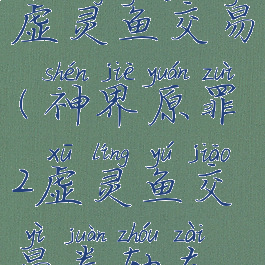 虚灵鱼交易
shén jiè yuán zuì
(神界原罪
xū líng yú jiāo
2虚灵鱼交
yì juàn zhóu zài